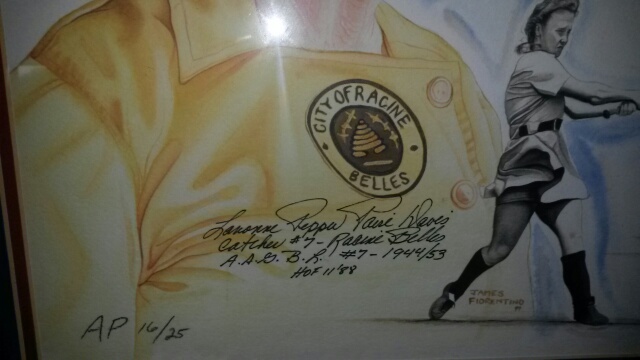 CITY OF RACINE
BELLES
Lavonne "Pepper" Paire Davis
Catcher #7 - Racine Belles
A.A.G.B.L. #7 - 1944/53
HOF 11'88
JAMES
FIORENTINO
AP 16/25